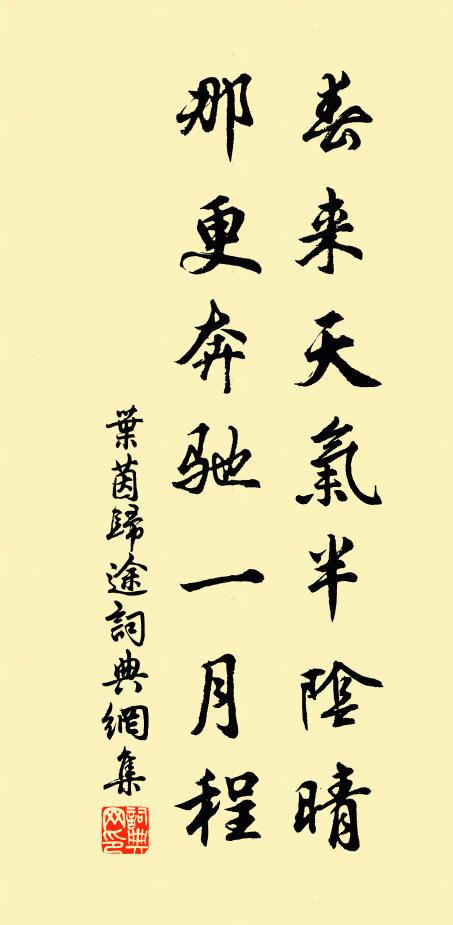 春来天氣半陰晴
那更奔馳一月程
葉茵歸途詞典網集
詞典网印